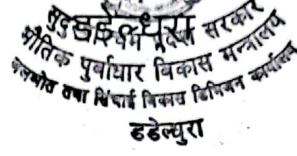 सुदूरपश्चिम प्रदेश सरकार
भौतिक पुर्वाधार विकास मन्त्रालय
जलस्रोत तथा सिंचाई विकास डिभिजन कार्यालय
डडेल्धुरा
डडेल्धुरा